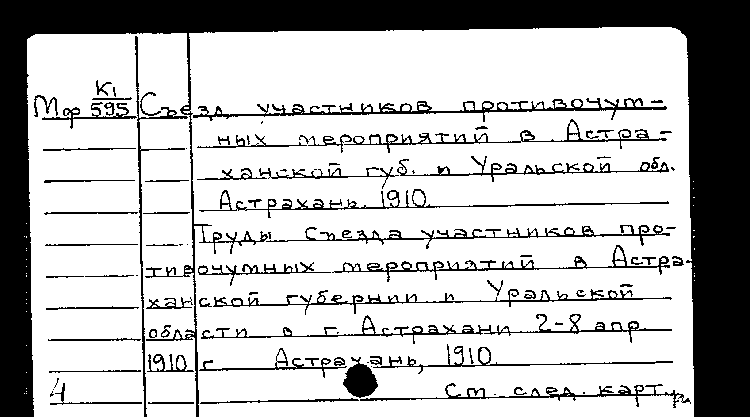 К1
Мф 595 Съезд участников противочум-
ных мероприятий в Астра-
ханской губ. и Уральской обл.
Астрахань. 1910
Труды Съезда участников про-
тивочумных мероприятий в Астра-
ханской губернии и Уральской
области в г. Астрахани 2-8 апр.
1910 г. Астрахань, 1910.
4 См. след. карт.